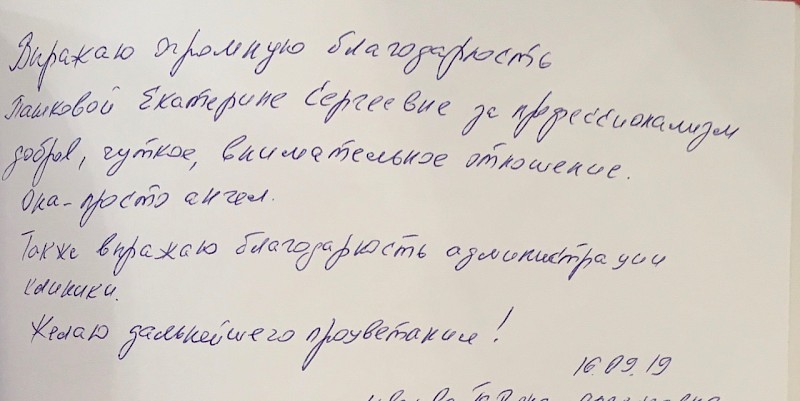 Выражаю огромную благодарность
Пашковой Екатерине Сергеевне за профессионализм
доброе, чуткое, внимательное отношение.
Она - просто ангел.
Также выражаю благодарность администрации
клиники.
Желаю дальнейшего процветания!
16.09.19